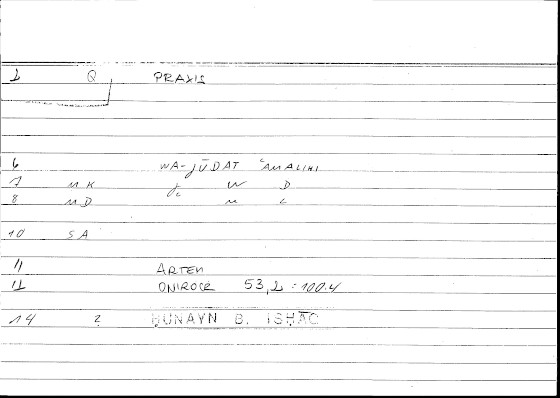 1 Q PRAXIS
6 WA-ǧŪDAT ʿAMALIHI
7 M K ǧ W D
8 M D M L
10 S A
11 ARTEM
12 ONIROCR 53,2 = 100.4
14 2 ḤUNAYN B. ISḤĀQ